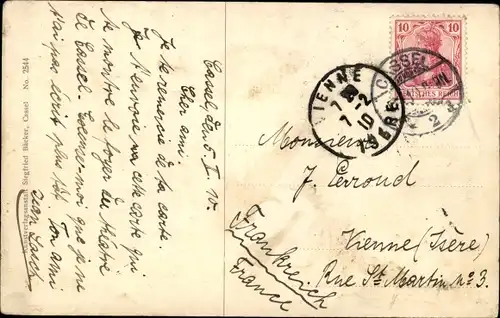 Kunstverlagsanstalt Siegfried Bäcker, Cassel  No. 2544
Cassel, den 5. I. 10.
Cher ami.
Je te remercie de la carte
Je t'envoie cette carte qui
te montre le foyer du théâtre
de Cassel. Excuse-moi que je ne
t'ai pas écrit plus tôt
Ton ami
10 10
DEUTSCHES REICH
CASSEL
VIENNE
7 2
10
ISÈRE
Monsieur
J. Perroud
Vienne (Isère)
Rue St Martin no 3.
Frankreich
France